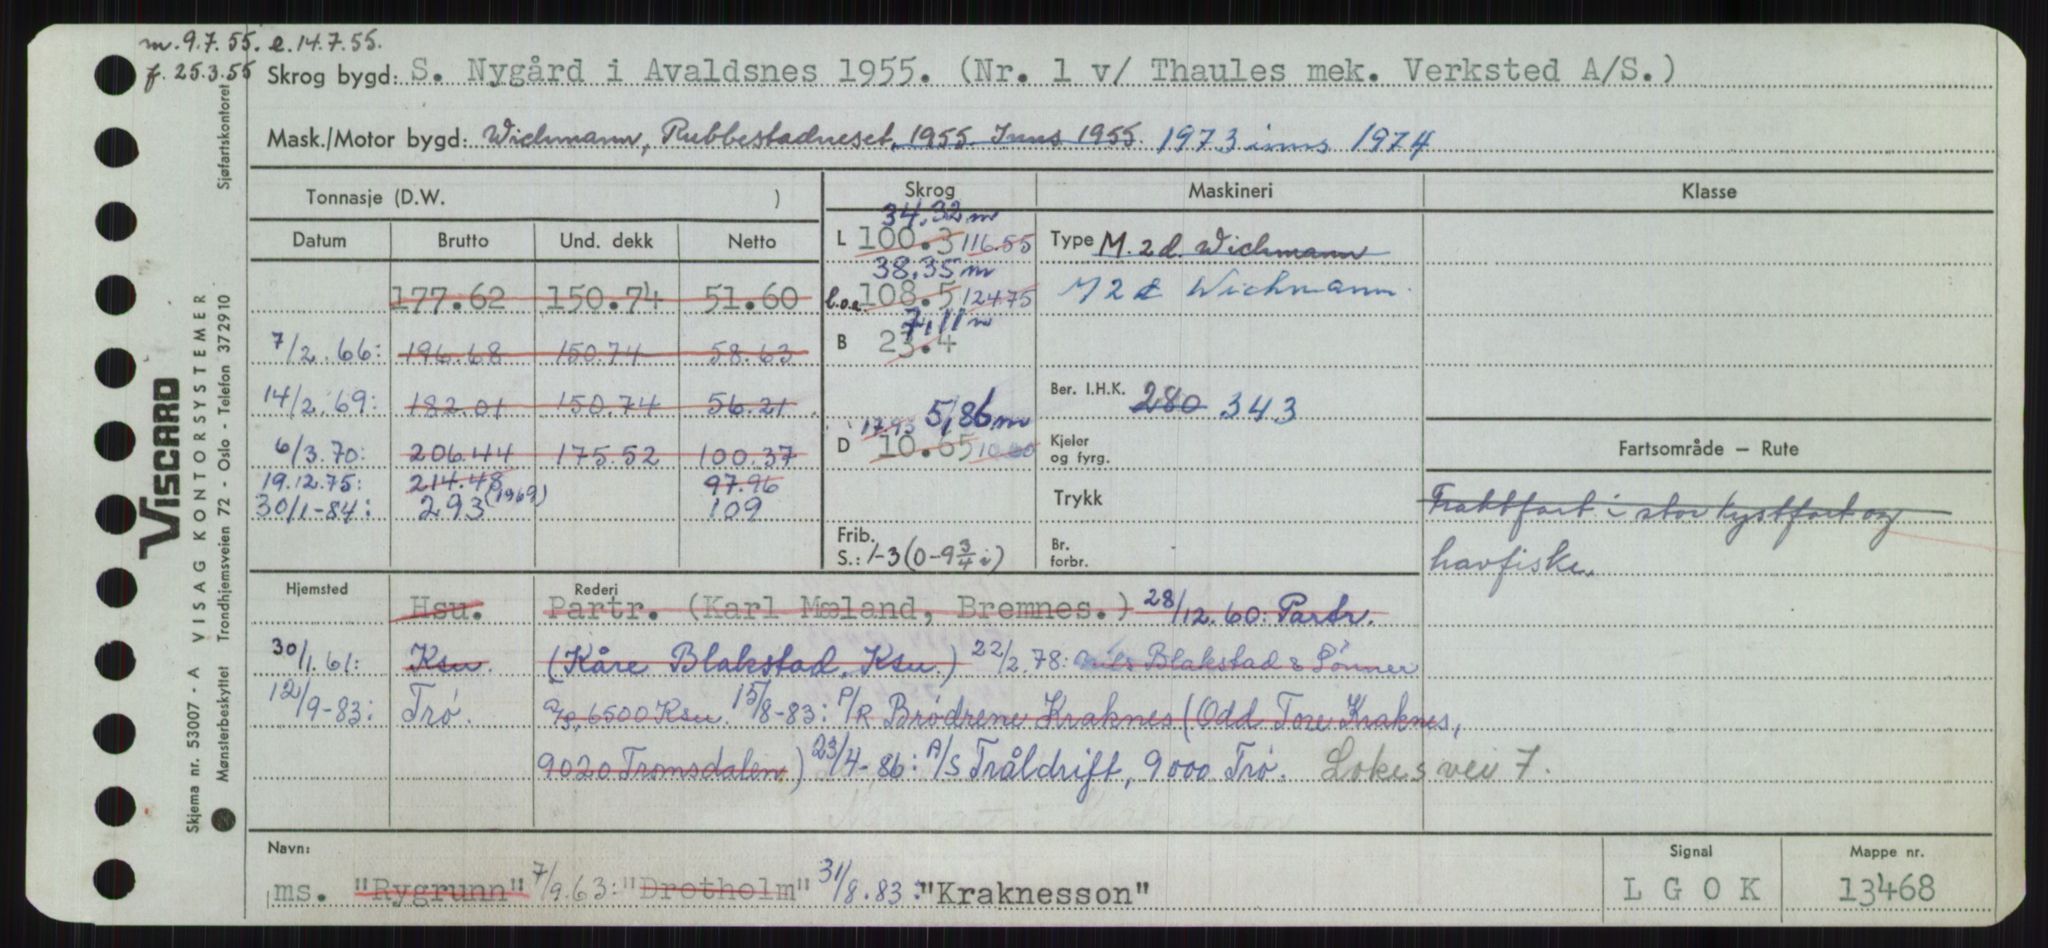 m. 9.7.55. e. 14.7.55.
f. 25.3.55 Skrog bygd: S. Nygård i Avaldsnes 1955. (Nr. 1 v/ Thaules mek. Verksted A/S.)
Mask./Motor bygd: Wichmann, Rubbestadneset, 1955 Inns 1955. 1973 inns 1974
Tonnasje (D.W. ) Skrog Maskineri Klasse
34,32 m
Datum Brutto Und. dekk Netto L 100.3 116.55 Type M. 2 d. Wichmann
38,35 m
177.62 150.74 51.60 l.o.a. 108.5 124.75 M 2 d Wichmann.
7,11 m
7/2.66: 196.68 150.74 58.63 B 23.4
14/2.69: 182.01 150.74 56.21 Ber. I.H.K. 280 343
17.93 5,86 m
6/3.70: 206.44 175.52 100.37 D 10.65 Kjeler og fyrg. Fartsområde – Rute
19.12.75: 214.48 97.96
30/1-84: 293 (1969) 109 Trykk Fraktfart i stor kystfart og
Frib. S.: 1-3 (0-9 3/4 i) Br. forbr. havfiske.
Hjemsted Rederi
Hsu. Partr. (Karl Mæland, Bremnes.) 28/12.60: Partr.
30/1.61: Ksu. (Kåre Blakstad, Ksu.) 22/2.78: Nils Blakstad & Sønner
12/9-83: Trø. A/S, 6500 Ksu. 15/8-83: P/R Brødrene Kraknes (Odd Tore Kraknes,
9020 Tromsdalen) 23/4-86: A/S Tråldrift, 9000 Trø. Lokes vei 7.
Navn: Signal Mappe nr.
ms. "Rygrunn" 7/9.63: "Drotholm" 31/8.83: "Kraknesson" LGOK 13468
Skjema nr. 53007 - A VISAG KONTORSYSTEMER
VISCARD
Mønsterbeskyttet Trondhjemsveien 72 - Oslo - Telefon 372910 Sjøfartskontoret